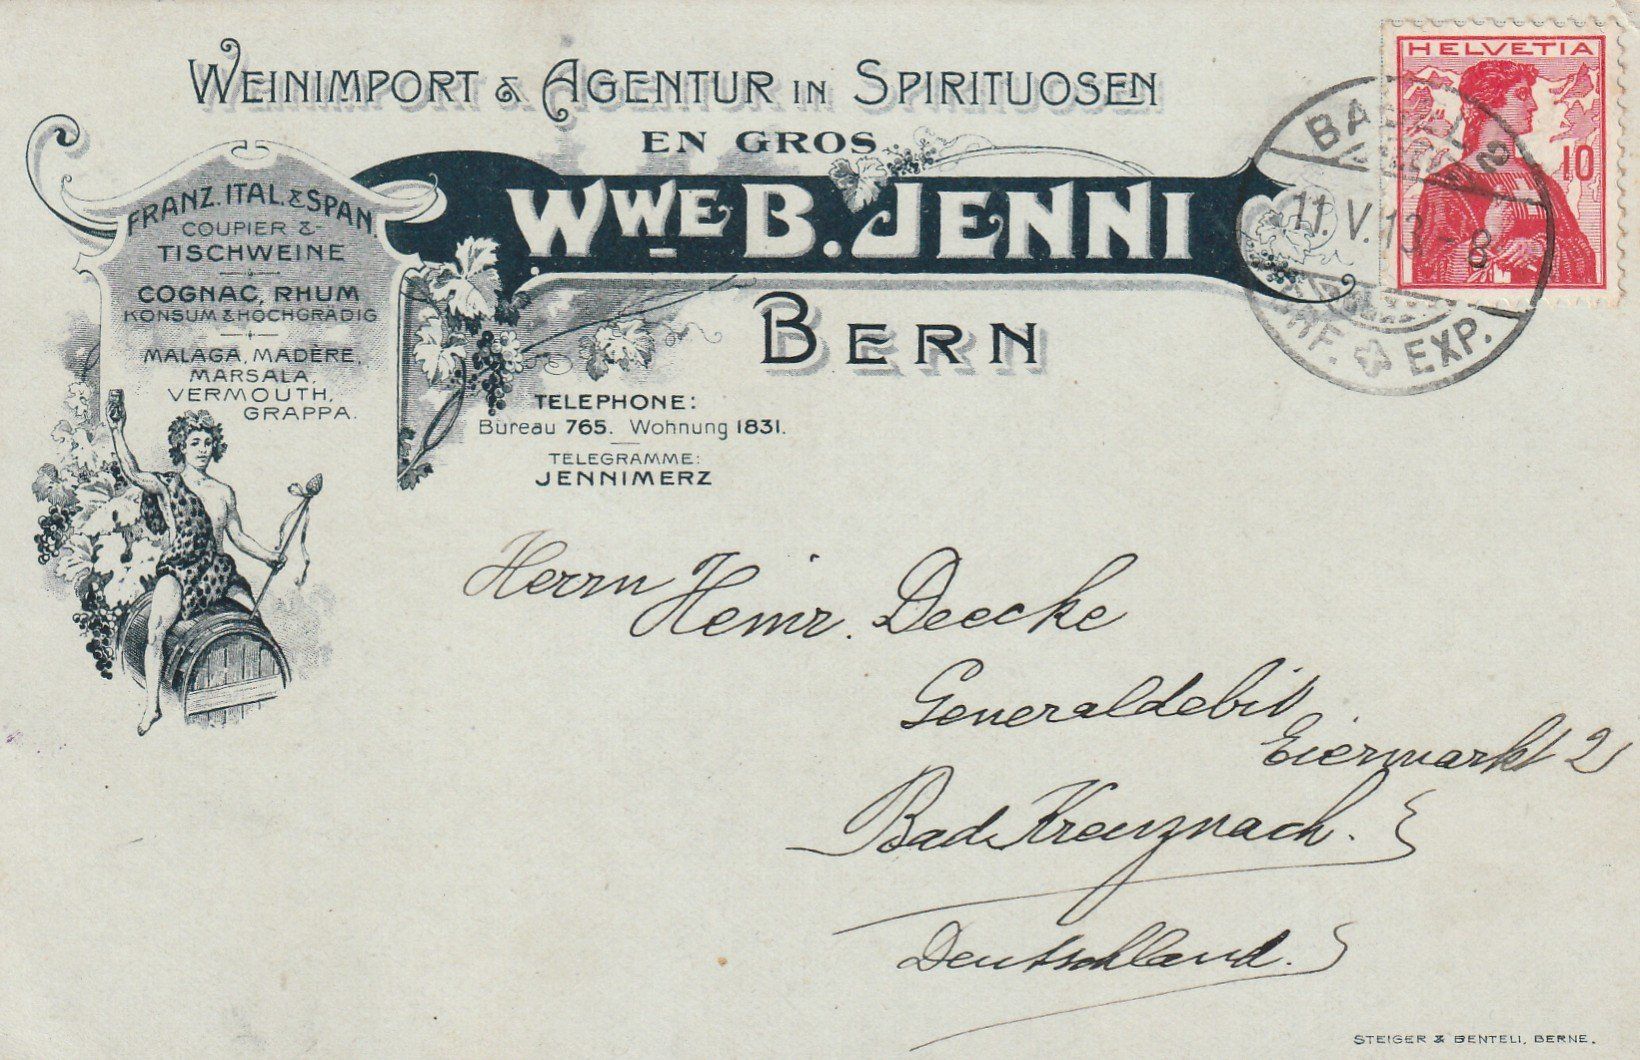 WEINIMPORT & AGENTUR IN SPIRITUOSEN
EN GROS
WWE B. JENNI
BERN
FRANZ. ITAL. & SPAN.
COUPIER &
TISCHWEINE
COGNAC, RHUM
KONSUM & HOCHGRADIG
MALAGA, MADÈRE,
MARSALA,
VERMOUTH,
GRAPPA.
TELEPHONE:
Bureau 765. Wohnung 1831.
TELEGRAMME:
JENNIMERZ
HELVETIA
10
BASEL 2
11. V. 13 - 8
BRF. EXP.
Herrn Heinr. Deecke
Generaldebit
Eiermarkt 2
Bad Kreuznach.
Deutschland.
STEIGER & BENTELI, BERNE.